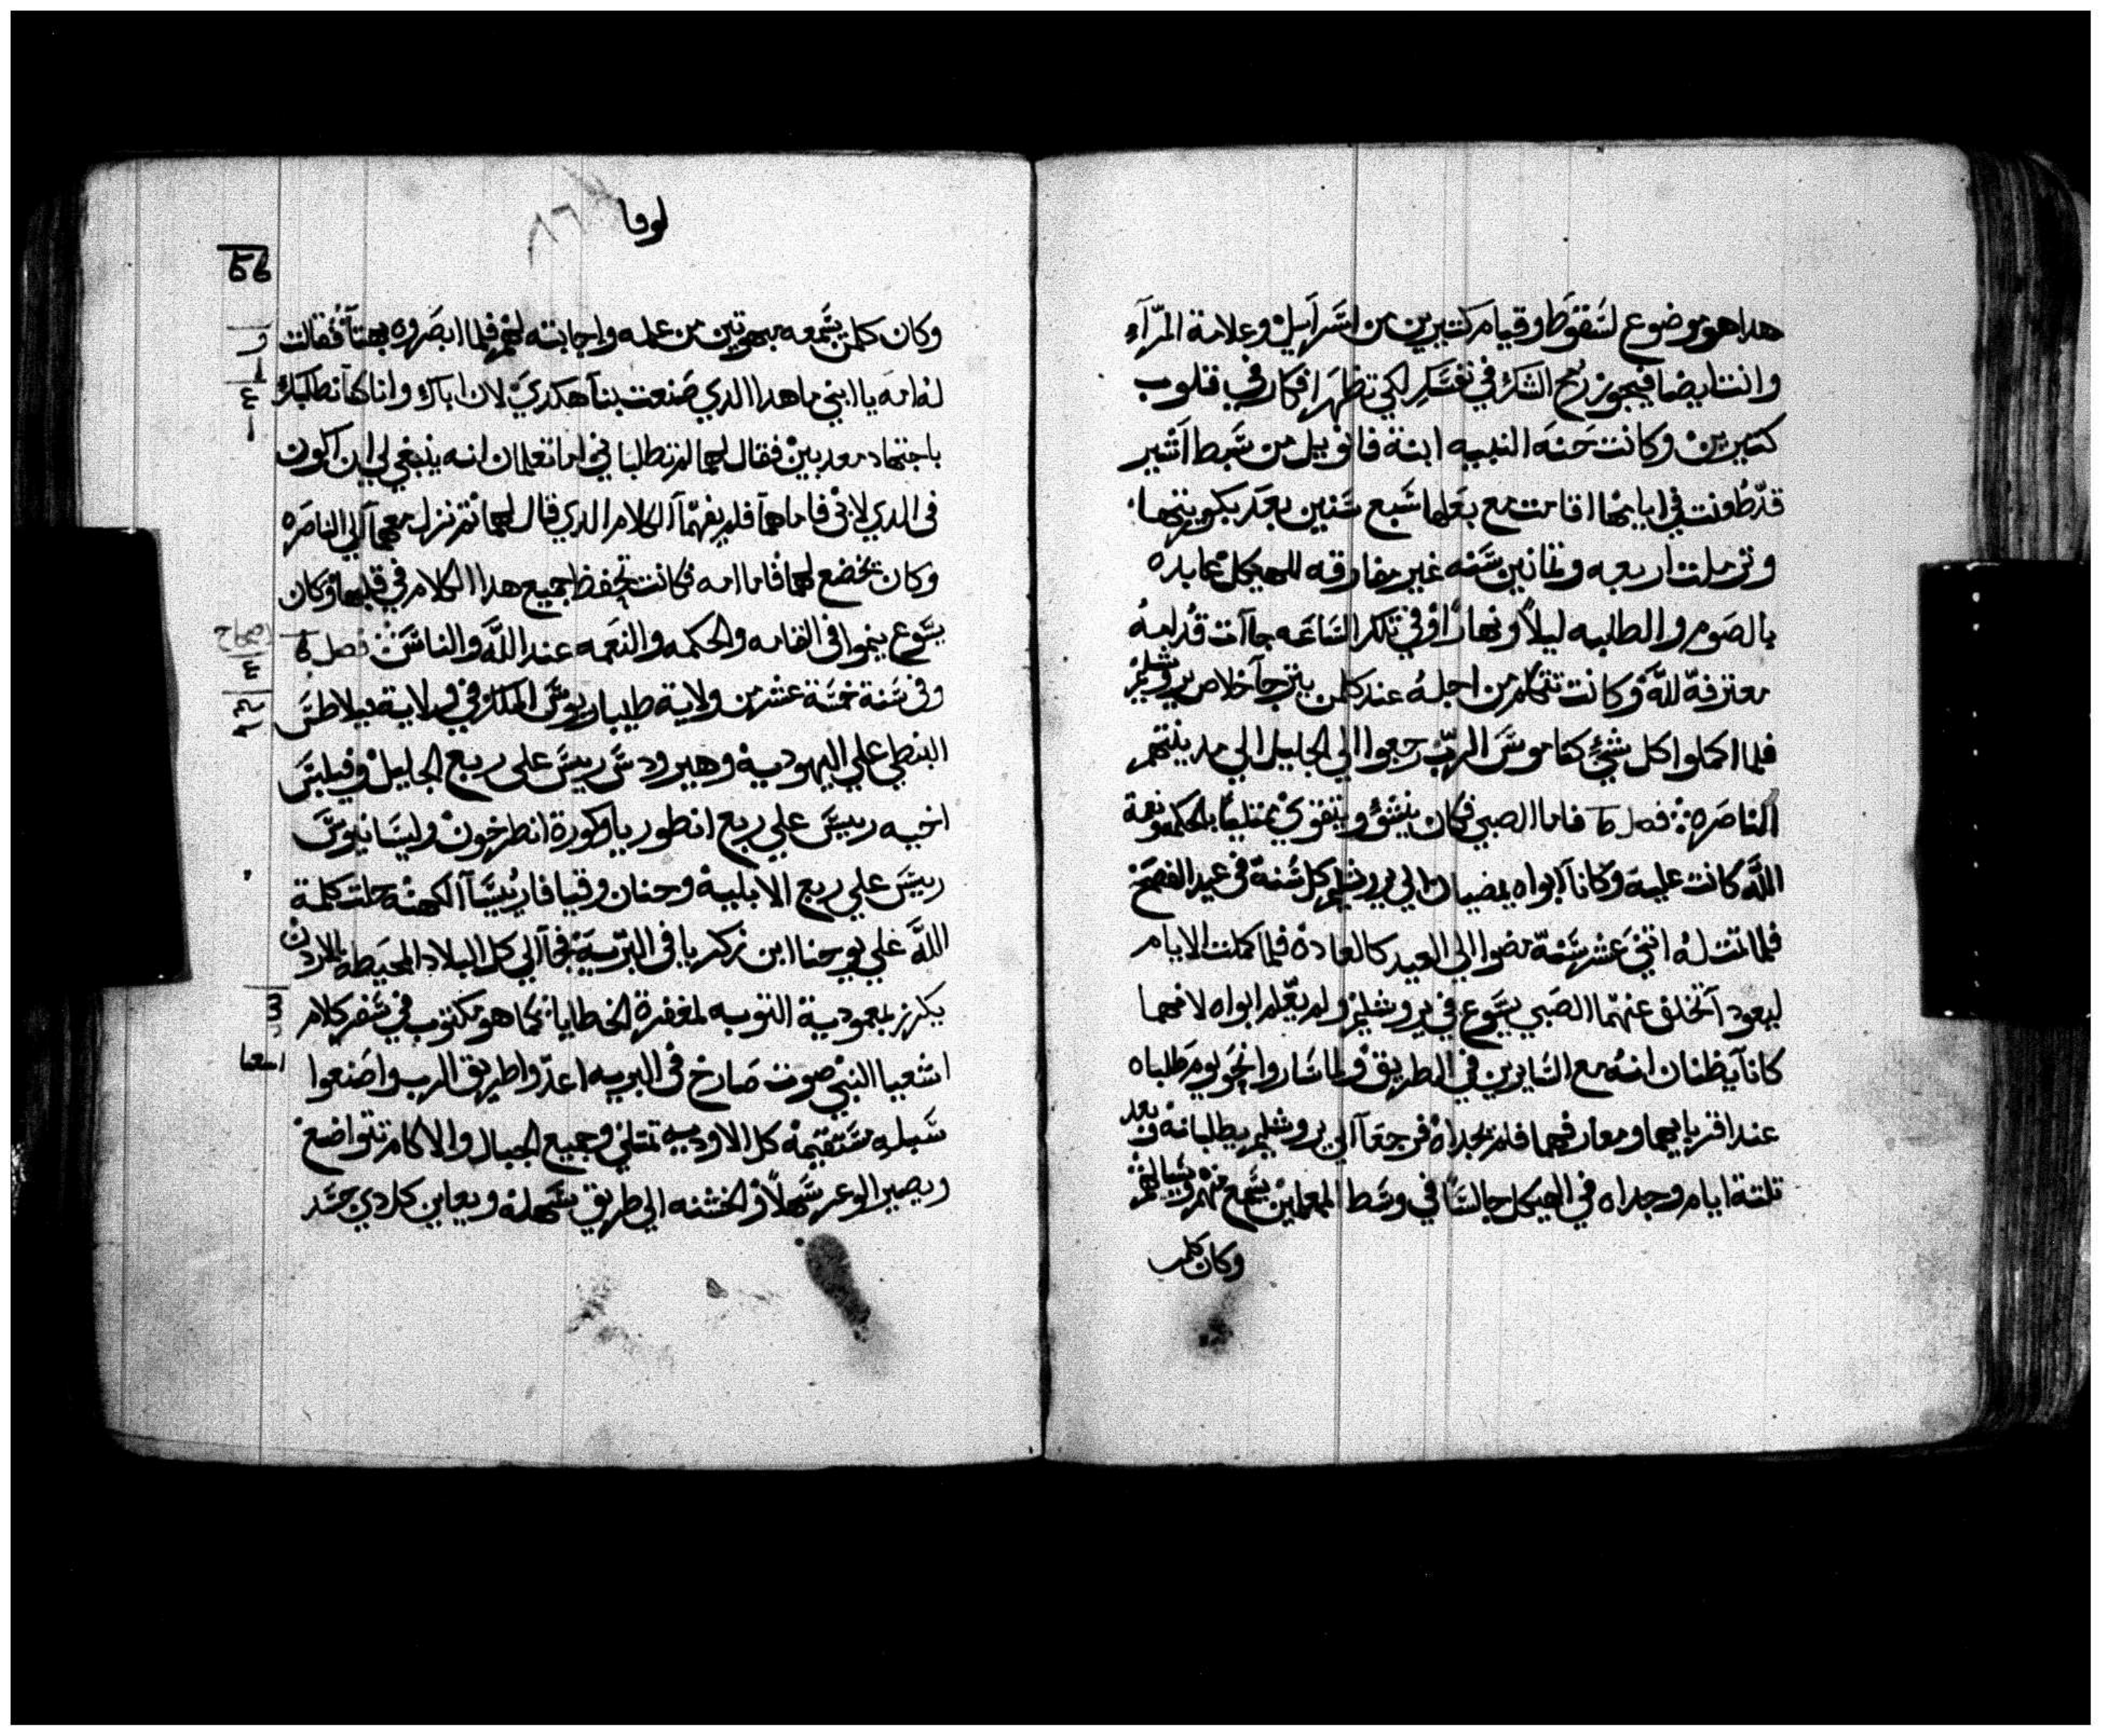 هدا هو موضوع لسقوط وقيام كتيرين من اسراييل وعلامة المرآء
وانت ايضا فيجوز رمح الشك في نفسك لكي تظهر افكار في قلوب
كتيرين وكانت حنه النبيه ابنة فانوييل من سبط اشير
قد طعنت في ايامها اقامت مع بعلها سبع سنين بعد بكوريتها
وترملت اربعه وتمانين سنه غير مفارقه للهيكل عابده
بالصوم والطلبه ليلاً ونهاراً وفي تلك الساعه جاآت قدامه
معترفة لله وكانت تتكلم من اجله عند كلمن يترجا خلاص يروشليم
فلما اكملوا كل شي كناموس الرب رجعوا الي الجليل الي مدينتهم
الناصره فصل فاما الصبي فكان ينشوُ ويتقوي ممتلياً بالحكمه ونعمة
الله كانت عليه وكانا ابواه يمضيان الي يروشليم كل سنة في عيد الفصح
فلما تمت له اتني عشر سنة مضوا الي العيد كالعادة فلما كملت الايام
ليعودا تخلف عنهما الصبي يسوع في يروشليم ولم يعلم ابواه لانهما
كانا يظنان انه مع السايرين في الطريق ولما ساروا نحو يوم طلباه
عند اقربايهما ومعارفهما فلم يجداه فرجعا الي يروشليم يطلبانه وبعد
تلتة ايام وجداه في الهيكل جالساً في وسط المعلمين يسمع منهم ويسالهم
وكان كلمن
لوقا ٨٦
56
وكان كلمن يسمعه مبهوتين من علمه واجابته لهم فلما ابصروه بهتا فقالت
له امه يا ابني ما هدا الدي صنعت بنا هكدي لان اباك وانا كنا نطلبك
باجتهاد معدبين فقال لهما لم تطلباني اما تعلمان انه ينبغي لي ان اكون
في الدي لابي فاما هما فلم يفهما الكلام الدي قال لهما تم نزل معهما الي الناصره
وكان يخضع لهما فاما امه فكانت تحفظ جميع هدا الكلام في قلبها وكان
يسوع ينموا في القامه والحكمه والنعمه عند الله والناس فصل
وفي سنة خمسة عشر من ولاية طيباريوس الملك في ولاية بيلاطس
البنطي علي اليهودية وهيرودس رييس علي ربع الجليل وفيلبس
اخيه رييس علي ربع انطوريا وكورة انطرخون وليسانيوس
رييس علي ربع الابلية وحنان وقيافا رُيسا الكهنه حلت كلمة
الله علي يوحنا ابن زكريا في البرية فجا الي كل البلاد المحيطه بالاردن
يكرز بمعمودية التوبه لمغفرة الخطايا كما هو مكتوب في سفر كلام
اشعيا النبي صوت صارخ في البريه اعدوا طريق الرب واصنعوا
سبله مستقيمه كل الاوديه تمتلي وجميع الجبال والاكام تتواضع
ويصير الوعر سهلاً والخشنه الي طريق سهله ويعاين كل دي جسد
اصحاح
اشعيا